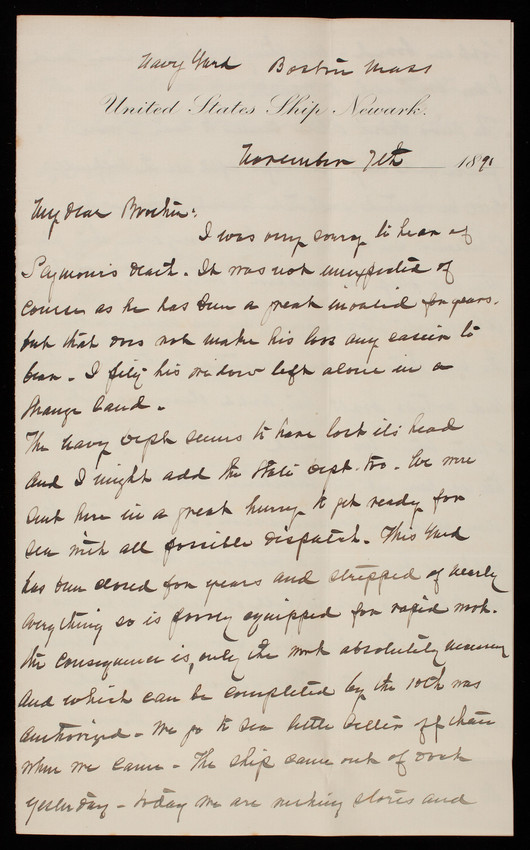 Navy Yard Boston Mass
United States Ship Newark.
November 7th 1891
My dear Brother:
I was very sorry to hear of
Seymour's death. It was not unexpected of
course as he has been a great invalid for years.
but that does not make his loss any easier to
bear. I pity his widow left alone in a
strange land.
The Navy Dept seems to have lost its head
and I might add the State Dept. too. We were
sent here in a great hurry to get ready for
sea with all possible dispatch. This Yard
has been closed for years and stripped of nearly
everything so is poorly equipped for rapid work.
the consequence is, only the work absolutely necessary
and which can be completed by the 10th was
authorized. We go to sea little better off than
when we came. The ship came out of dock
yesterday - today we are making stores and